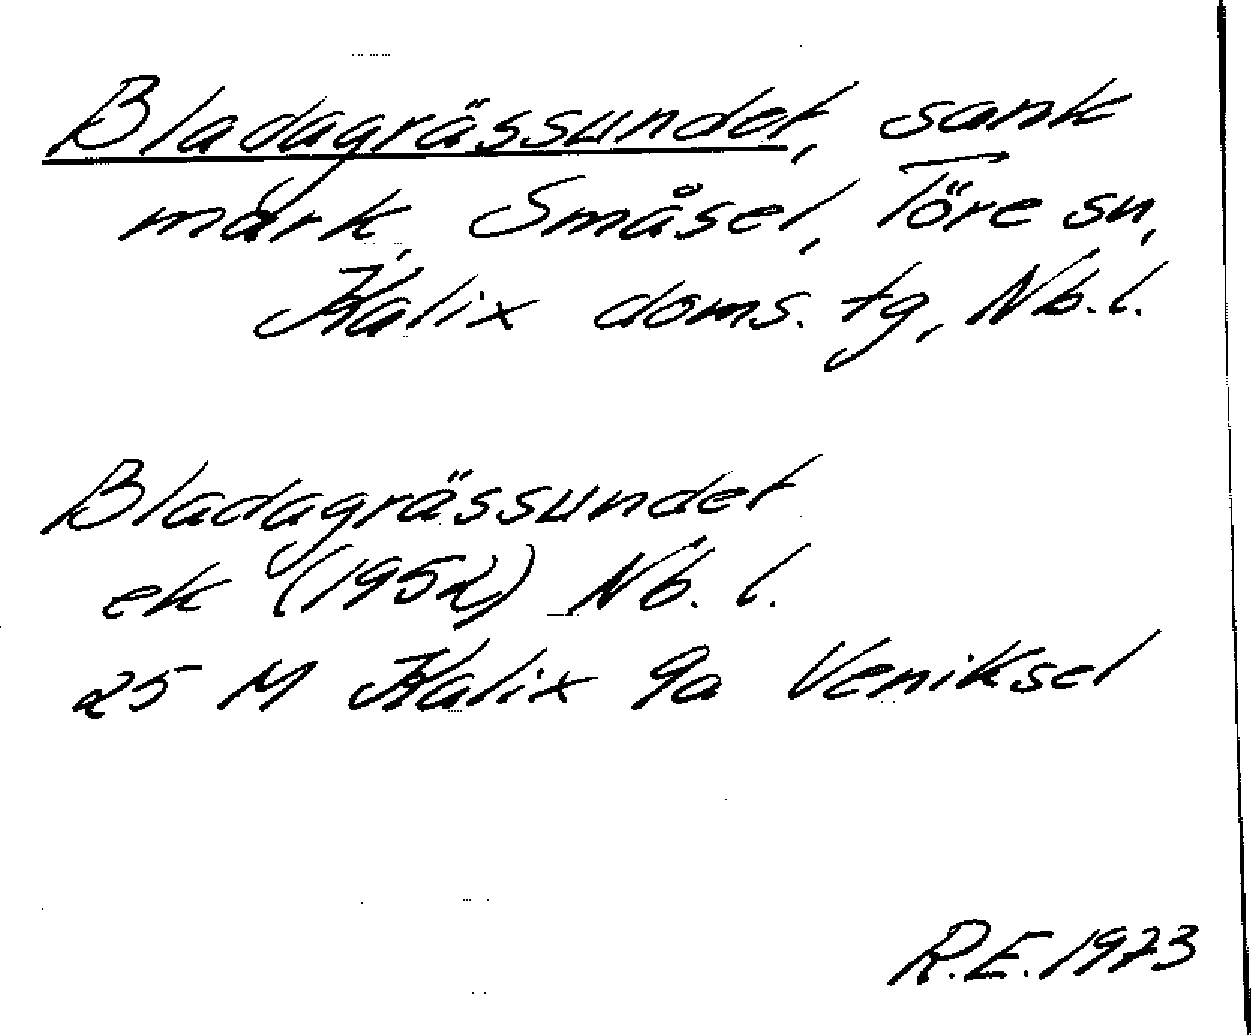 Bladagrässundet, sank
mark, Småsel, Töre sn,
Kalix doms. tg, Nb.l.
Bladagrässundet
ek (1952) Nb. l.
25 M Kalix 9a Veniksel
R.E. 1973